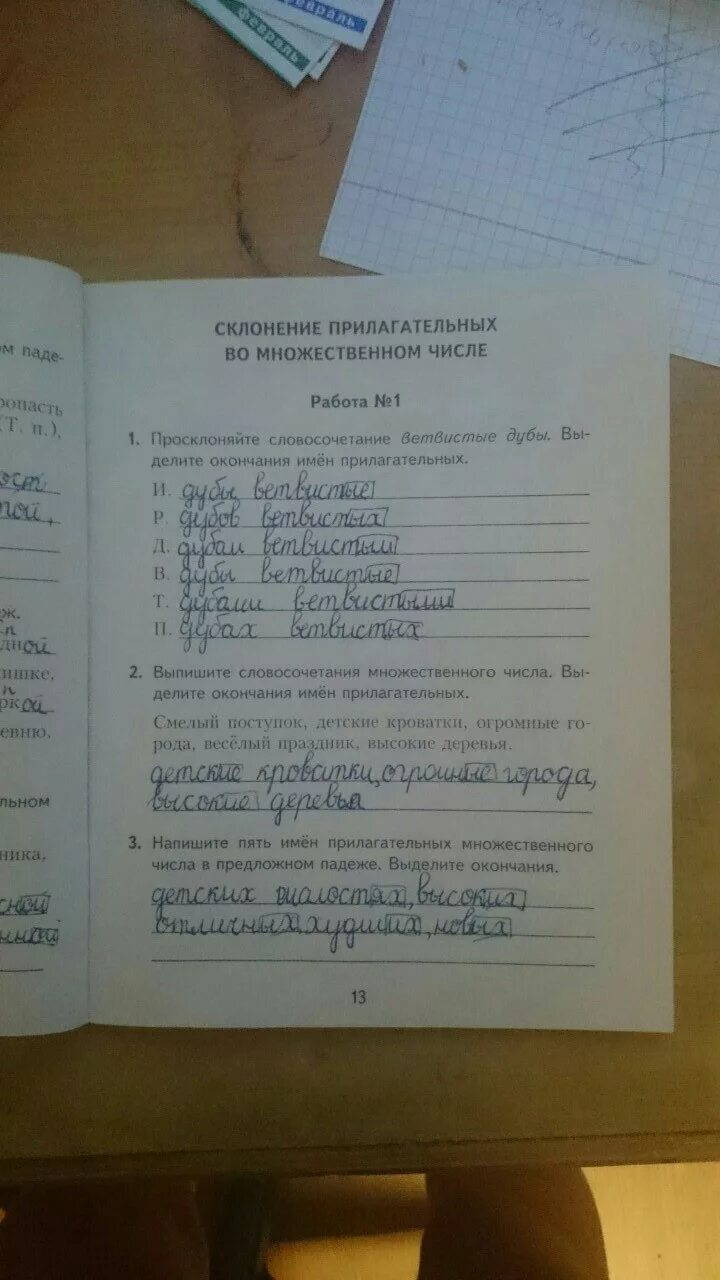 февраль
февраль
СКЛОНЕНИЕ ПРИЛАГАТЕЛЬНЫХ
ВО МНОЖЕСТВЕННОМ ЧИСЛЕ
Работа №1
1. Просклоняйте словосочетание ветвистые дубы. Вы-
делите окончания имён прилагательных.
И. дубы ветвистые
Р. дубов ветвистых
Д. дубам ветвистым
В. дубы ветвистые
Т. дубами ветвистыми
П. дубах ветвистых
2. Выпишите словосочетания множественного числа. Вы-
делите окончания имён прилагательных.
Смелый поступок, детские кроватки, огромные го-
рода, весёлый праздник, высокие деревья.
детские кроватки, огромные города,
высокие деревья
3. Напишите пять имён прилагательных множественного
числа в предложном падеже. Выделите окончания.
детских шалостях, высоких
отличных худших, новых
13
ом паде-
ропасть
(Т. п.),
ост
той,
еж.
п
дной
ишке,
п
ркой
евню,
льном
ника,
сной
нной